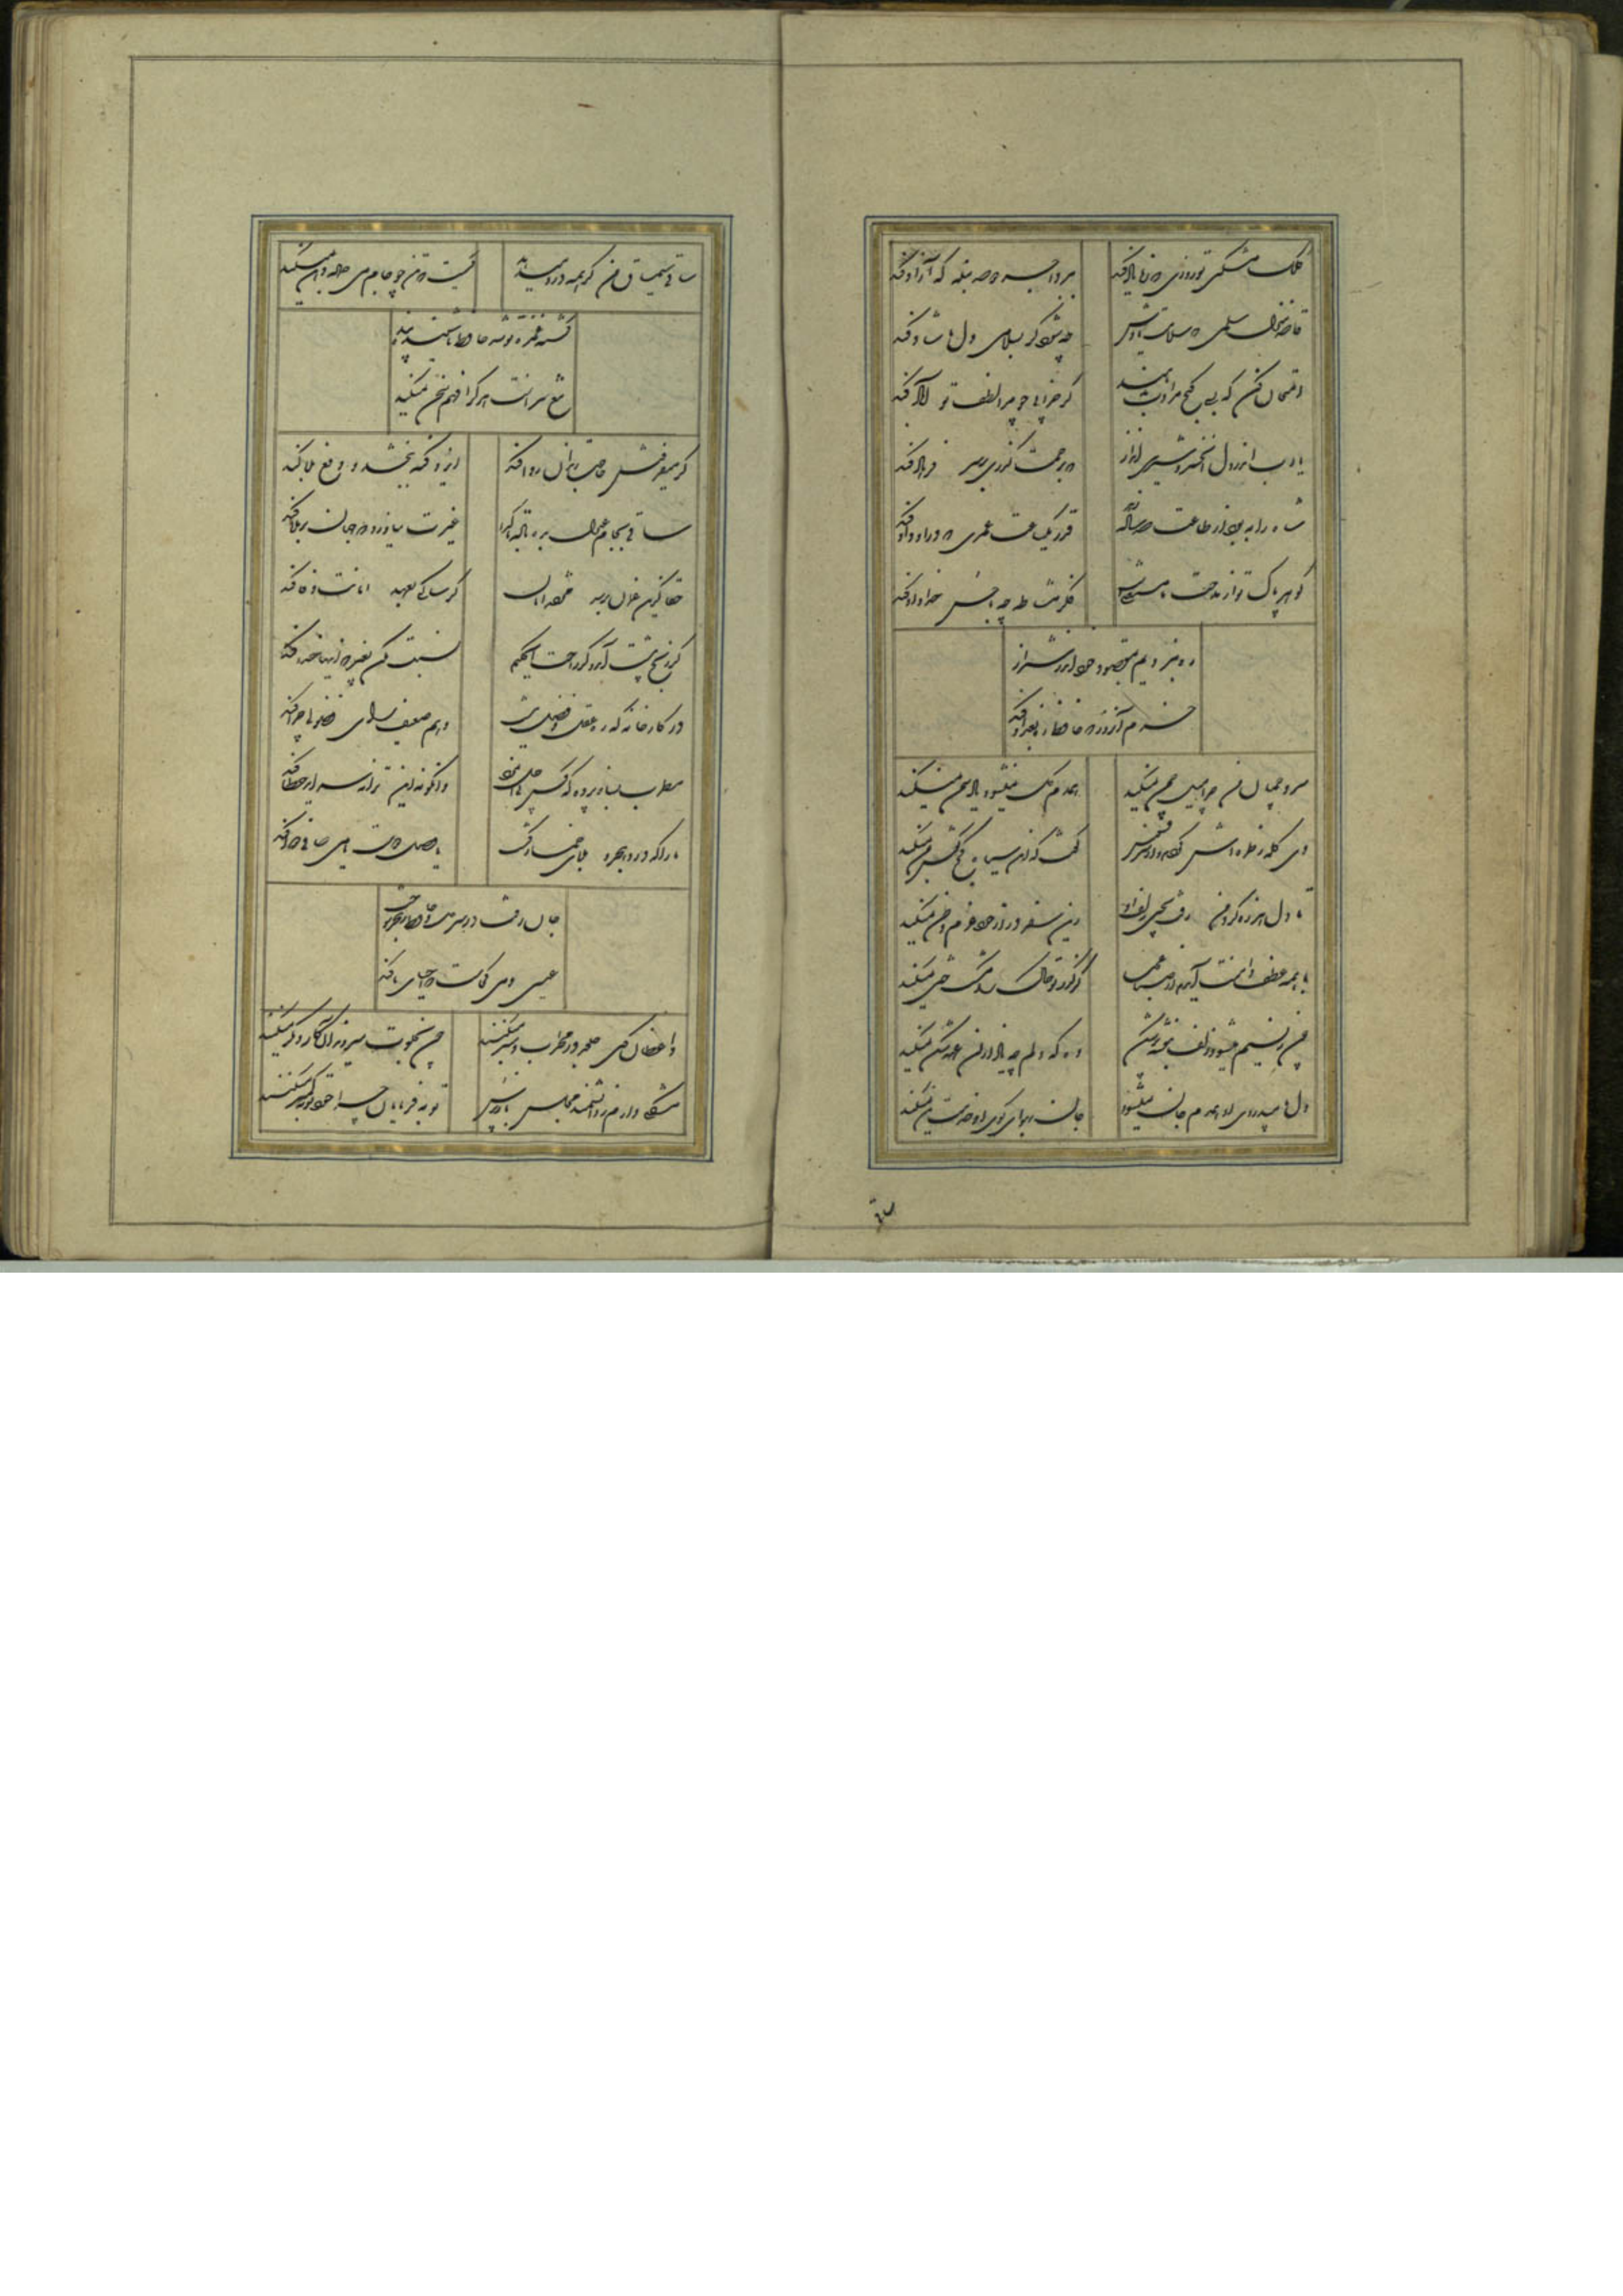 کلک مشکین تو روزی که ز ما یاد کند
ببرد اجر دو صد بنده که آزاد کند
قاصد منزل سلمی که سلامت بادش
چه شود گر بسلامی دل ما شاد کند
امتحان کن که بسی گنج مرادت بدهند
گر خرابی چو مرا لطف تو آباد کند
یا رب اندر دل آن خسرو شیرین انداز
که برحمت گذری بر سر فرهاد کند
شاه را به بود از طاعت صد ساله
قدر یک ساعت عمری که درو داد کند
گوهر پاک تو از مدحت ما مستغنیست
فکر مشاطه چه با حسن خداداد کند
ره نبردیم بمقصود خود اندر شیراز
خرم آن روز که حافظ ره بغداد کند
سرو چمان من چرا میل چمن نمیکند
همدم گل نمیشود یاد سمن نمیکند
دی گله ز طره اش کردم و از سر فسوس
گفت که این سیاه کج گوش بمن نمیکند
تا دل هرزه گرد من رفت بچین زلف او
زین سفر دراز خود عزم وطن نمیکند
با همه عطف دامنت آیدم از صبا عجب
کز گذر تو خاک را مشک ختن نمیکند
چون ز نسیم میشود زلف بنفشه پر شکن
وه که دلم چه یاد از آن عهد شکن نمیکند
دل بامید روی او همدم جان نمیشود
جان بهوای کوی او خدمت تن نمیکند
ساقی سیم ساق من گر همه درد میدهد
کیست که تن چو جام می جمله دهن نمیکند
کشته غمزه تو شد حافظ ناشنیده پند
تیغ سزاست هر کرا فهم سخن نمیکند
گر میفروش حاجت رندان روا کند
ایزد گنه ببخشد و دفع بلا کند
ساقی بجام عدل بده باده تا گدا
غیرت نیاورد که جهان پر بلا کند
حقا کزین غمان برسد مژده امان
گر سالکی بعهد امانت وفا کند
گر رنج پیشت آید و گر راحت ای حکیم
نسبت مکن بغیر که اینها خدا کند
در کارخانه که ره عقل و فضل نیست
وهم ضعیف رای فضولی چرا کند
مطرب بساز پرده که کس بی اجل نمرد
وانکو نه این ترانه سراید خطا کند
ما را که درد هجر و بلای خمار کشت
یا وصل دوست یا می صافی دوا کند
جان رفت در سر می و حافظ بعشق سوخت
عیسی دمی کجاست که احیای ما کند
واعظان کین جلوه در محراب و منبر میکنند
چون بخلوت میروند آن کار دیگر میکنند
مشکلی دارم ز دانشمند مجلس باز پرس
توبه فرمایان چرا خود توبه کمتر میکنند